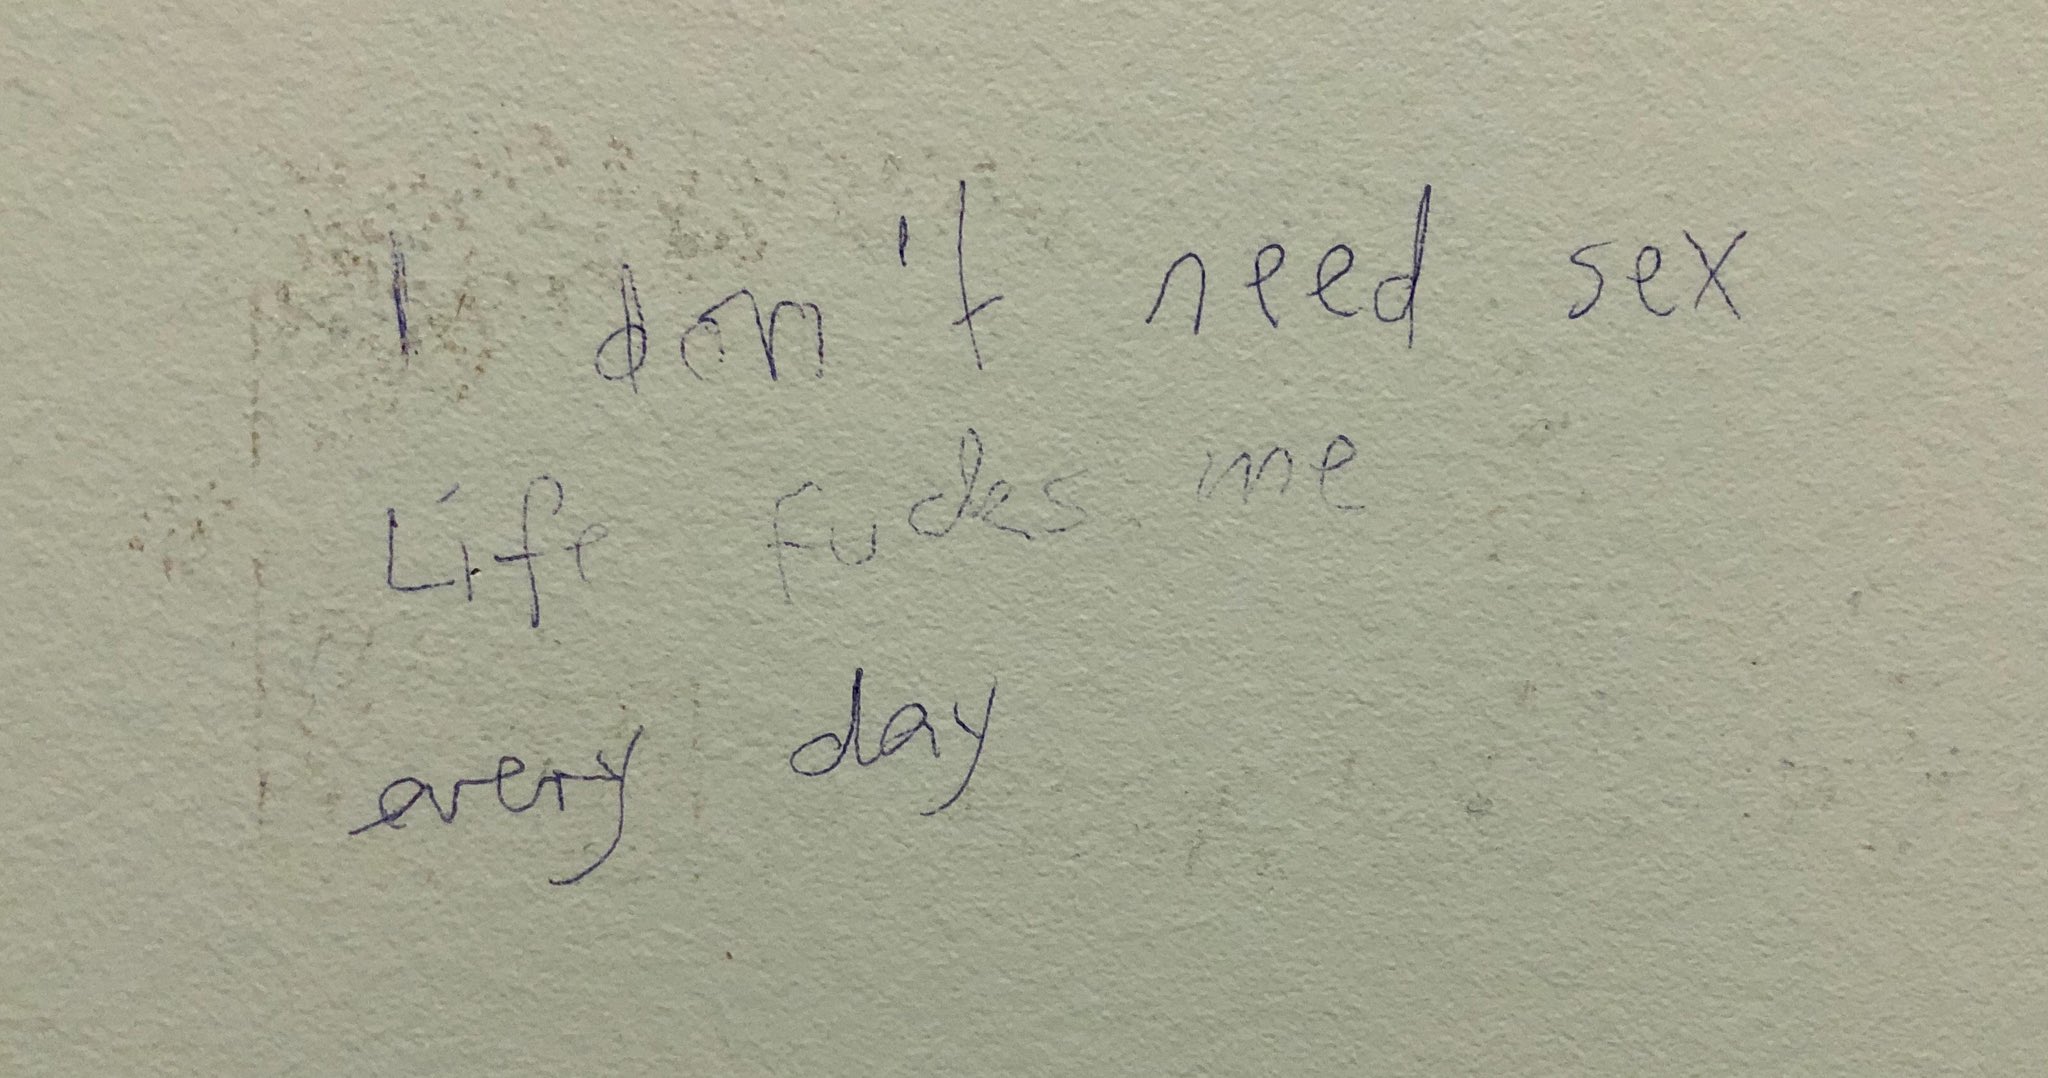 I don't need sex
Life fucks me
every day